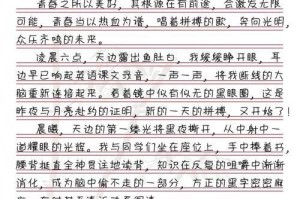 青春之所以美好，其根源在有前途，会激发无限
可能。青春当以热血为谱，唱着拼搏的歌，奔向光明，
众乐齐鸣的未来。
凌晨六点，天边露出鱼肚白，我缓缓睁开眼，耳
边早已响起英语课文录音，一声一声，将我断线的大
脑重新连接起来。看着镜中似有似无的黑眼圈，这是
昨夜与月亮赴约的证明，新的一天的拼搏，又开始了！
晨曦，天边的第一缕光将黑夜撕开，从中射中一
道耀眼的光辉。我与同学们坐在座位上，手中捧着书，
腰背挺直全神贯注地读背，知识在反复的咀嚼中渐渐
消化，成为脑中偷不走的一部分，方正的黑字密密麻